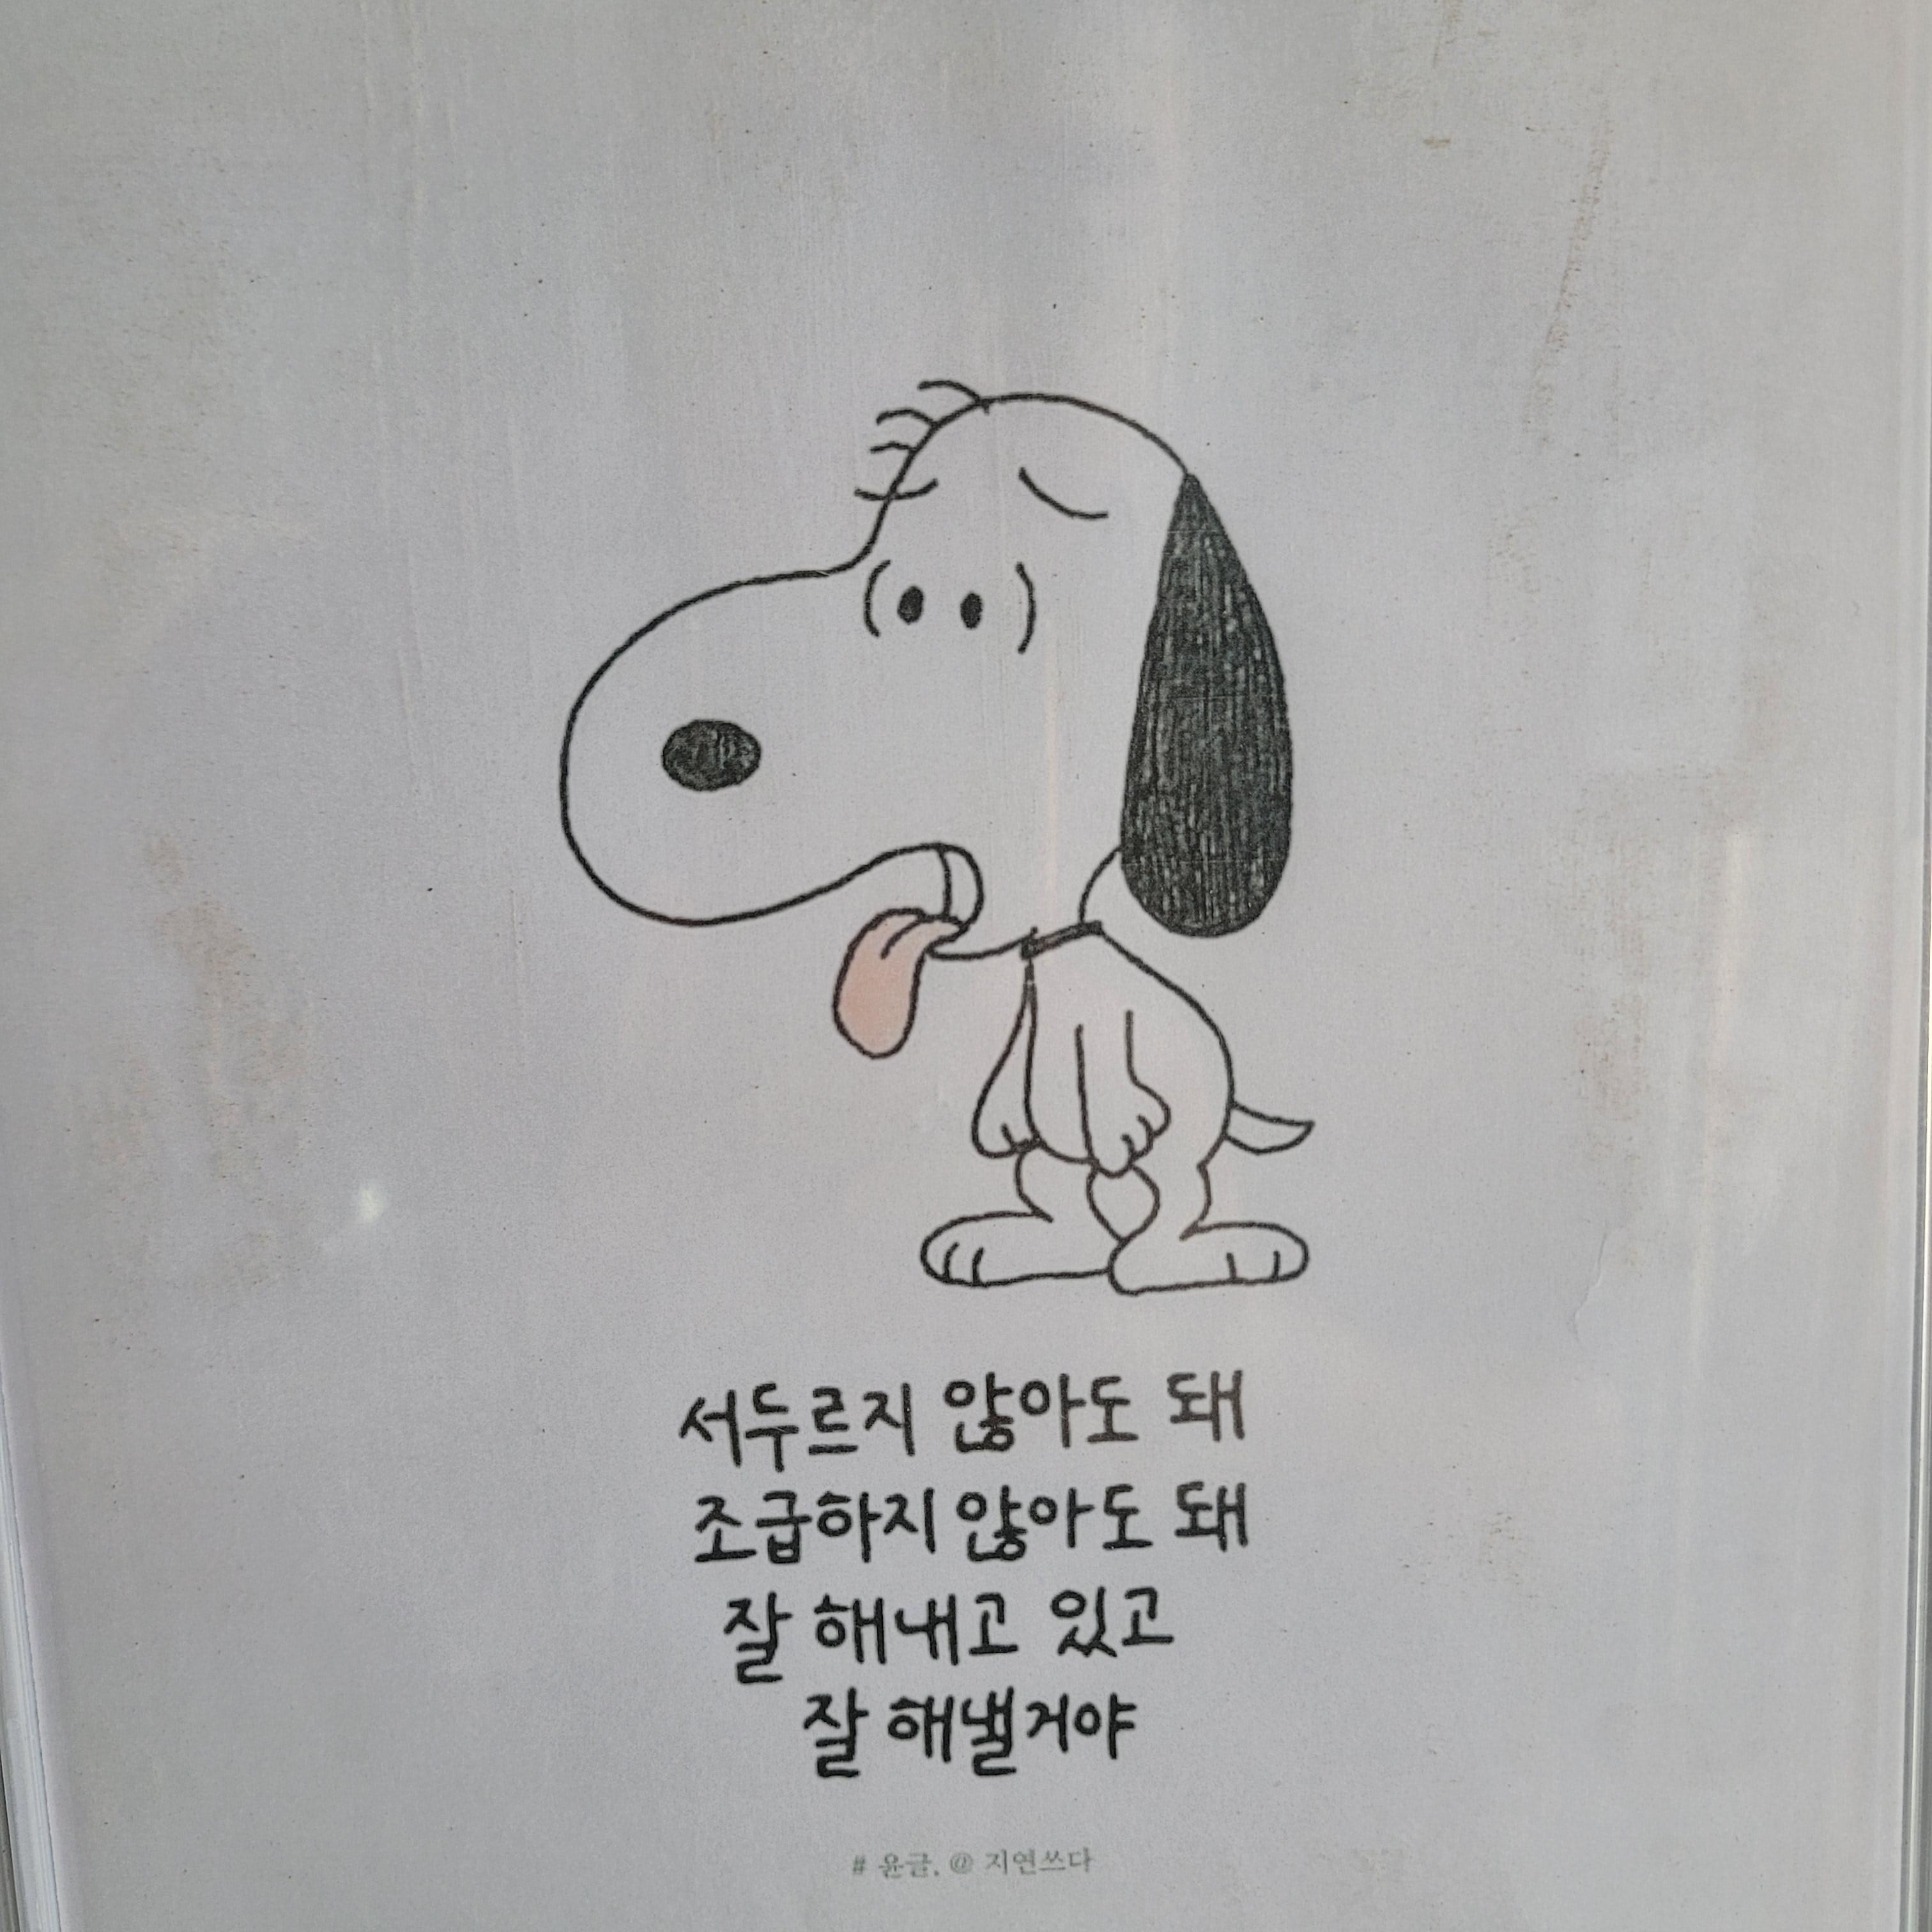 서두르지 않아도 돼
조급하지 않아도 돼
잘 해내고 있고
잘 해낼거야
# 윤글, @ 지연쓰다